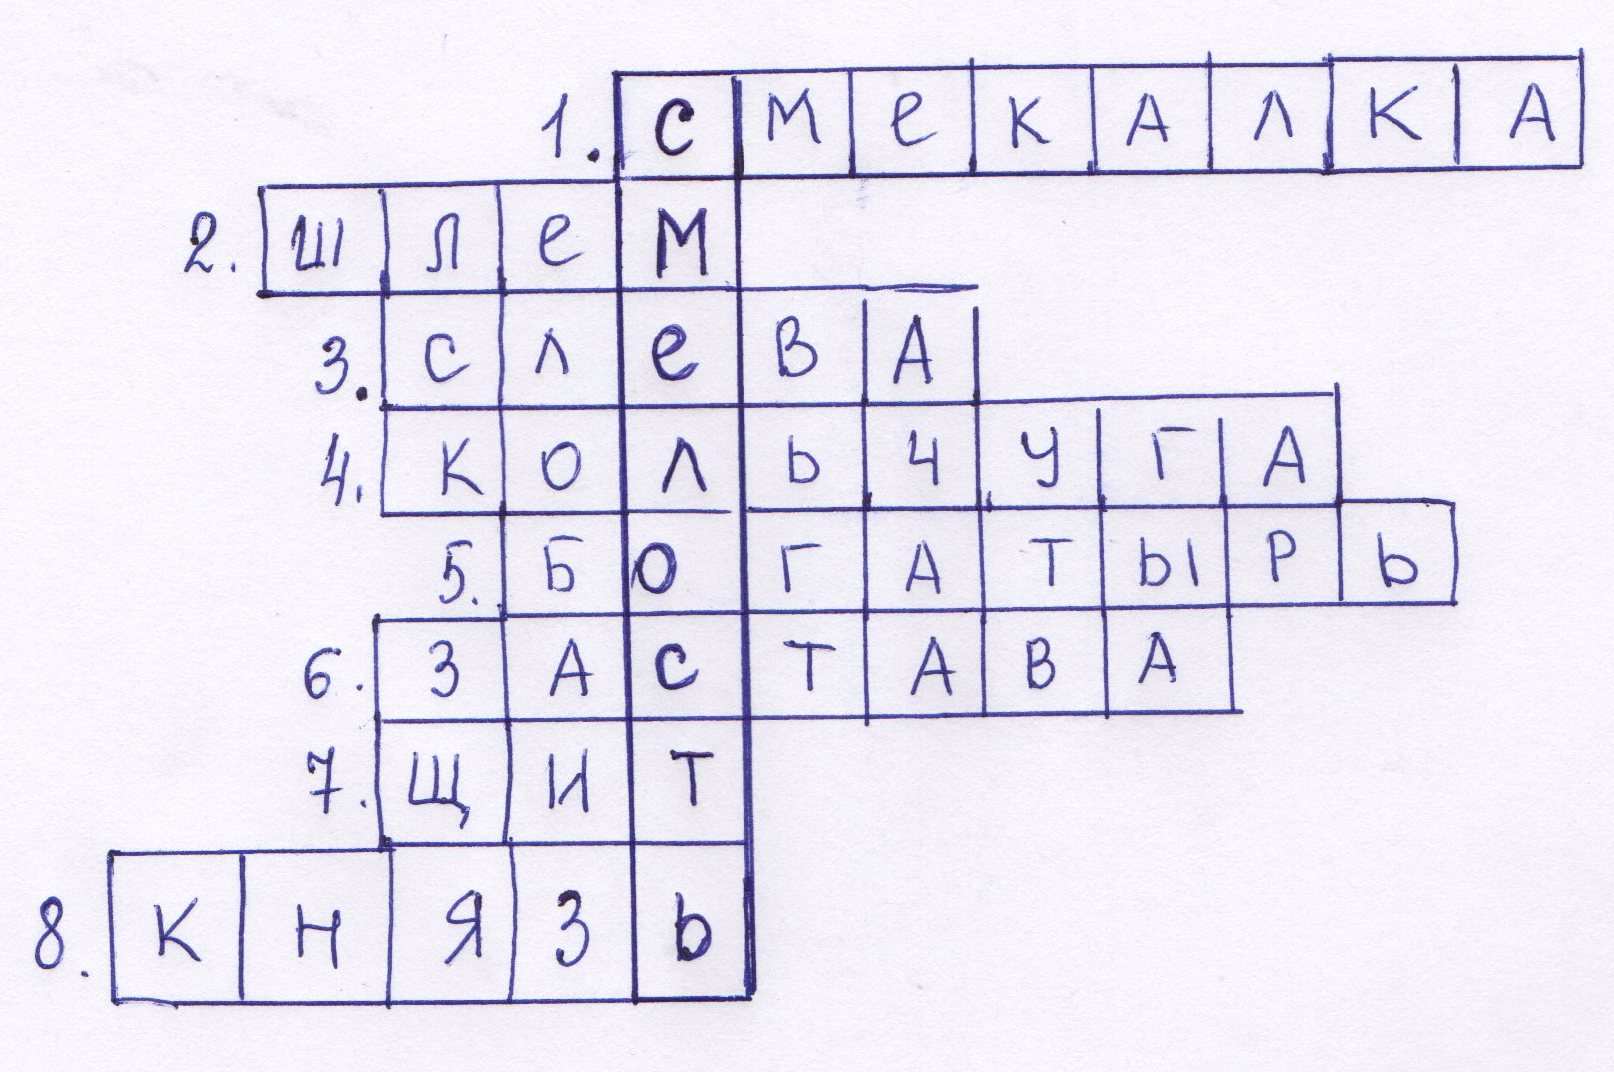 1. смекалка
2. шлем
3. слева
4. кольчуга
5. Богатырь
6. застава
7. щит
8. князь